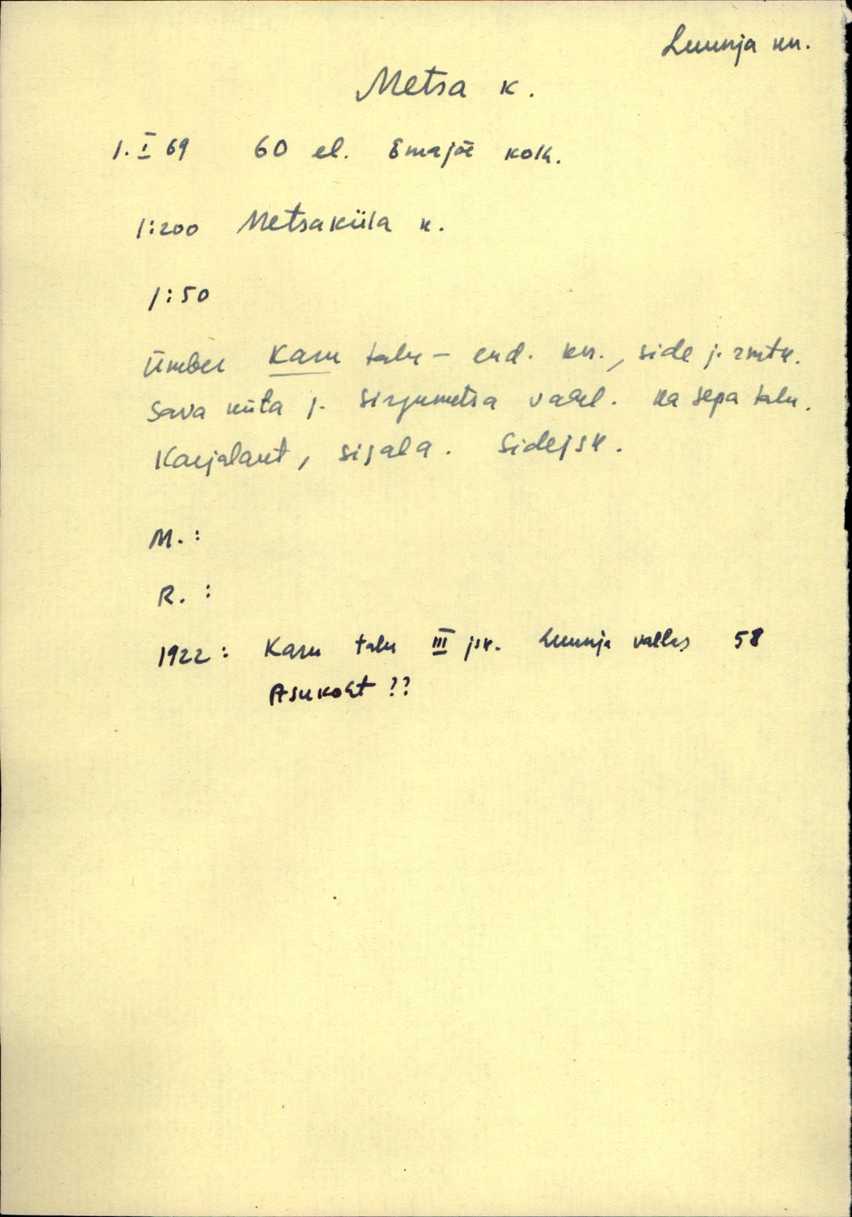 Luunja kn.
Metsa k.
1. I 69 60 el. Emajõe kolh.
1:200 Metsaküla k.
1:50
Ümber Karu talu – end. kn., side j.
Sava küla j. Sirgumetsa vahel. ka Sepa talu.
Karjalaut, sigala. Sidejsk.
M. :
R. :
1922 : Karu talu III jsk. Luunja vallas 58
Asukoht ??